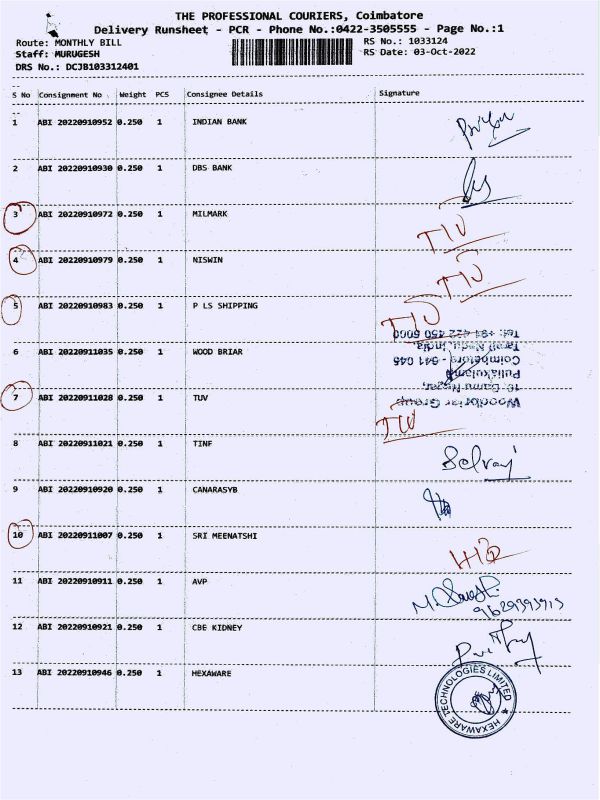 THE PROFESSIONAL COURIERS, Coimbatore
Delivery Runsheet - PCR - Phone No.:0422-3505555 - Page No.:1
Route: MONTHLY BILL RS No.: 1033124
Staff: MURUGESH RS Date: 03-Oct-2022
DRS No.: DCJB103312401
S No Consignment No Weight PCS Consignee Details Signature
1 ABI 20220910952 0.250 1 INDIAN BANK
2 ABI 20220910930 0.250 1 DBS BANK
3 ABI 20220910972 0.250 1 MILMARK
4 ABI 20220910979 0.250 1 NISWIN
5 ABI 20220910983 0.250 1 P LS SHIPPING
6 ABI 20220911035 0.250 1 WOOD BRIAR
Woodbriar Group
Pullakulam
Coimbatore - 641 045
Tamil Nadu, India.
Tel: +91 422 450 5000
7 ABI 20220911028 0.250 1 TUV
8 ABI 20220911021 0.250 1 TINF Selvaj
9 ABI 20220910920 0.250 1 CANARASYB
10 ABI 20220911007 0.250 1 SRI MEENATSHI
11 ABI 20220910911 0.250 1 AVP
12 ABI 20220910921 0.250 1 CBE KIDNEY
13 ABI 20220910946 0.250 1 HEXAWARE
HEXAWARE TECHNOLOGIES LIMITED